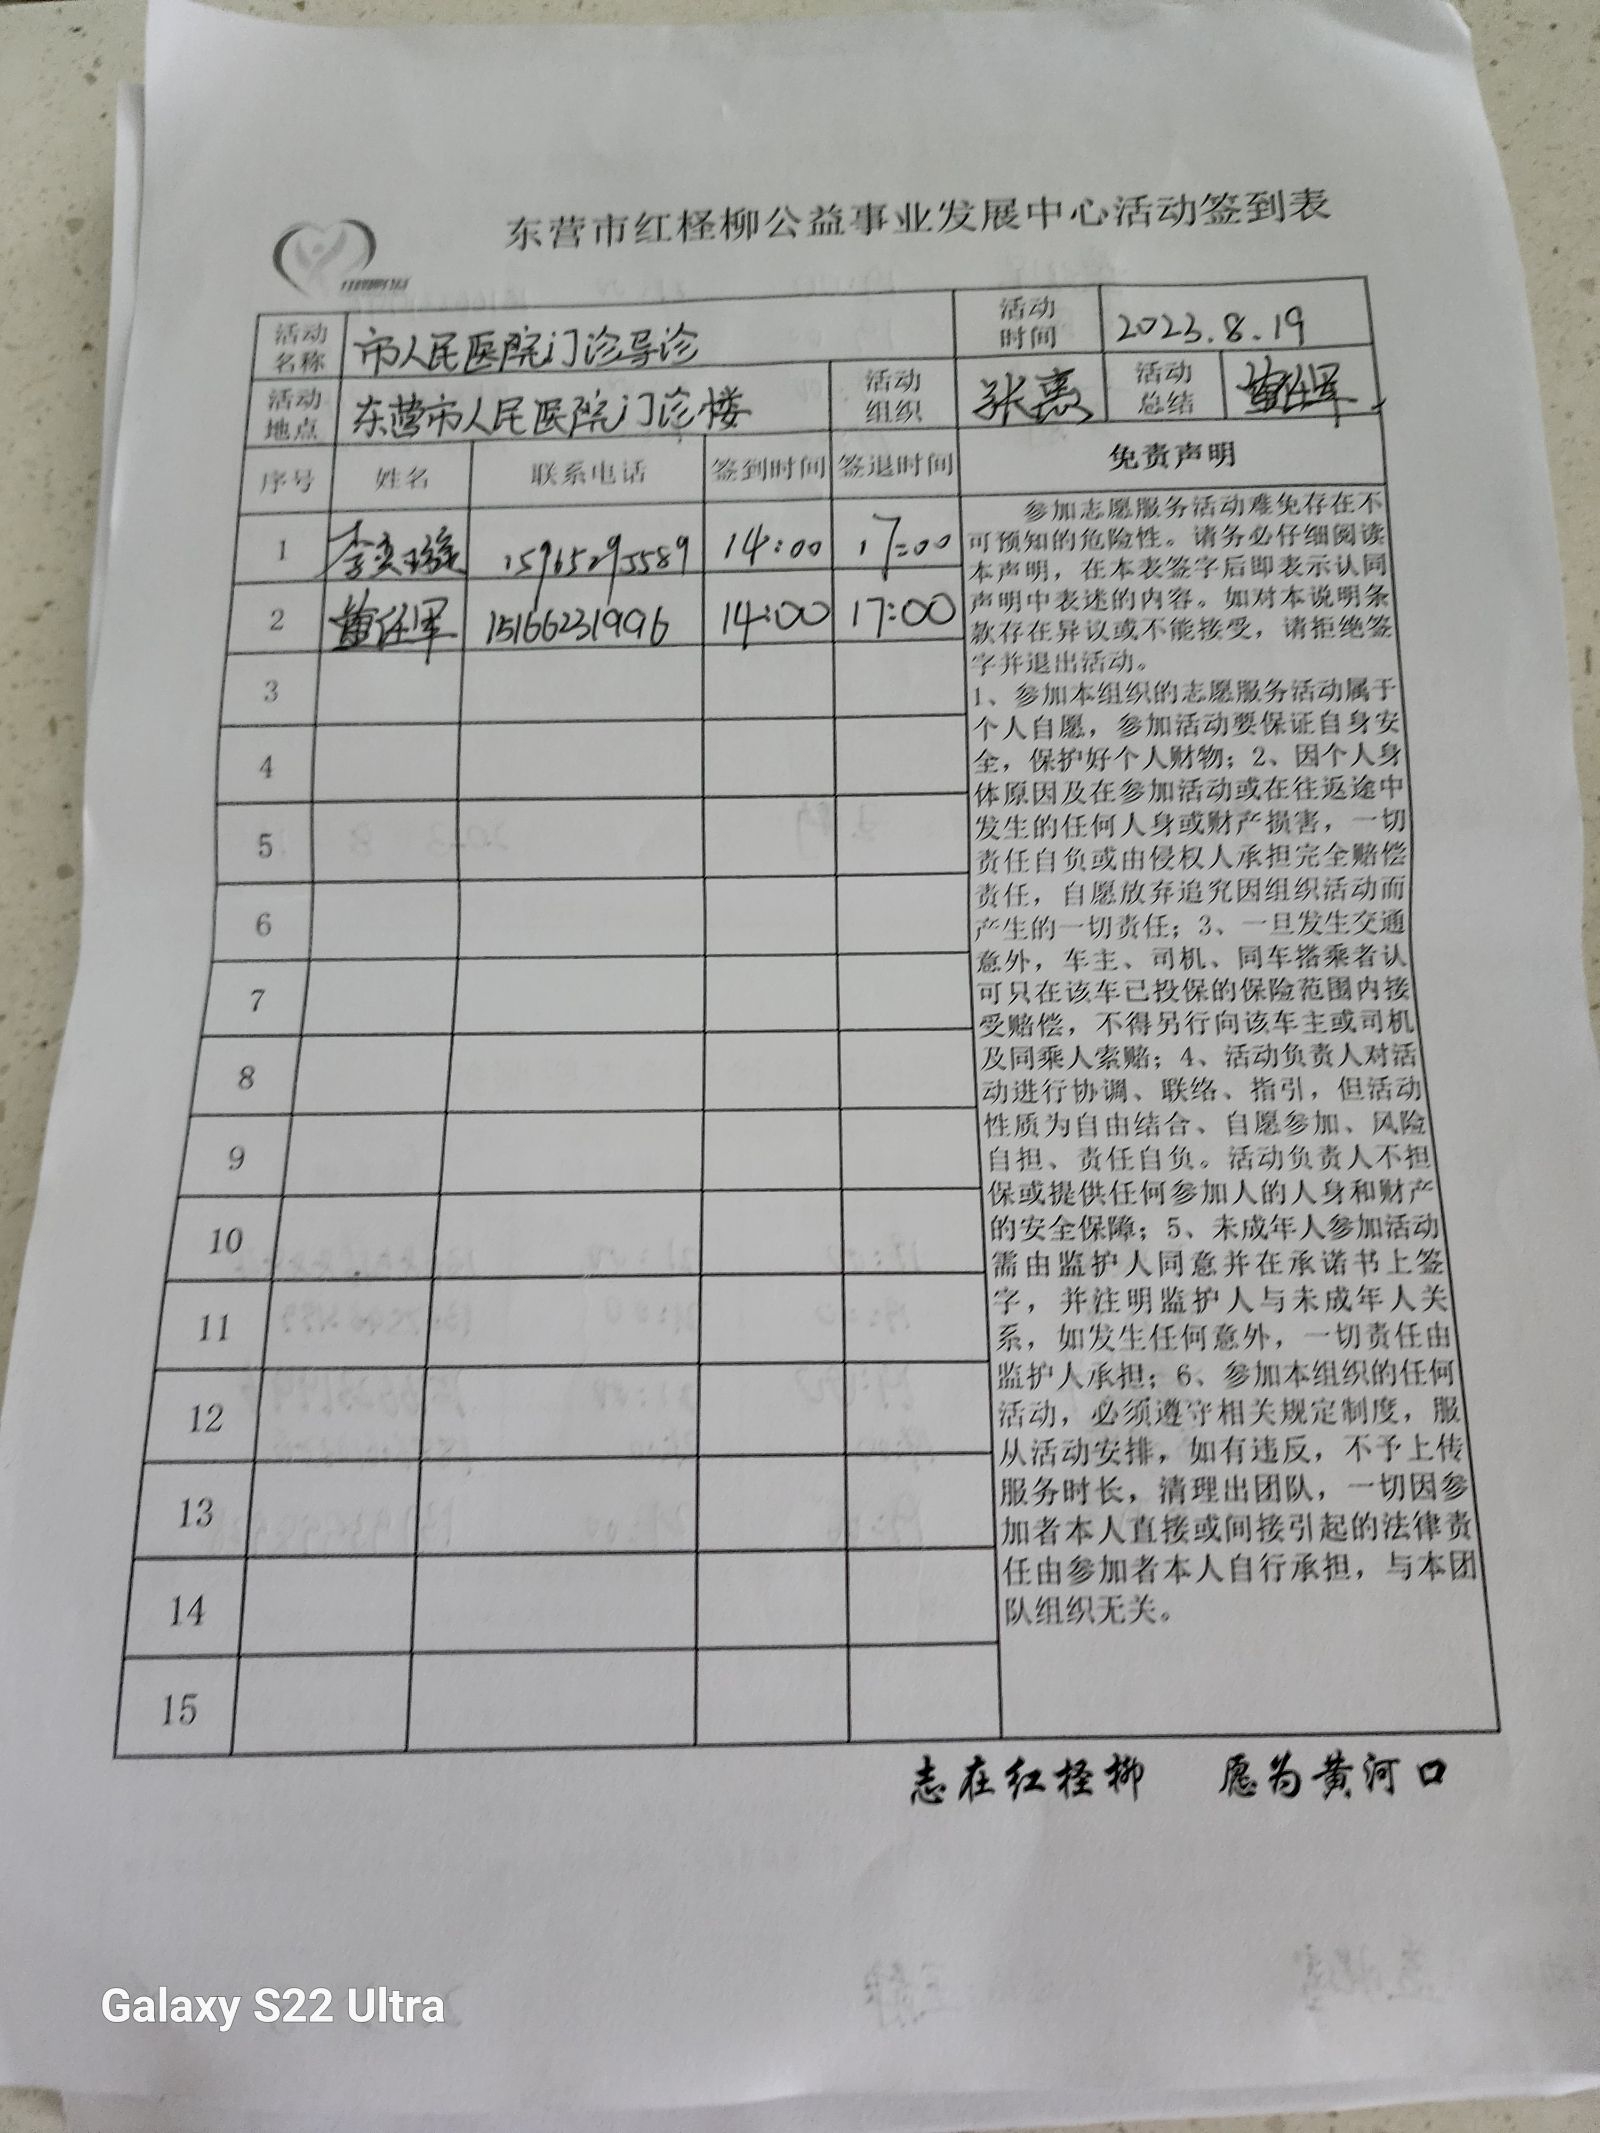 东营市红柽柳公益事业发展中心活动签到表
活动名称 市人民医院门诊导诊 活动时间 2023.8.19
活动地点 东营市人民医院门诊楼 活动组织 张惠 活动总结
序号 姓名 联系电话 签到时间 签退时间 免责声明
1 李奕璇 15965295589 14:00 17:00
2 15166231996 14:00 17:00
3
4
5
6
7
8
9
10
11
12
13
14
15
参加志愿服务活动难免存在不
可预知的危险性。请务必仔细阅读
本声明，在本表签字后即表示认同
声明中表述的内容。如对本说明条
款存在异议或不能接受，请拒绝签
字并退出活动。
1、参加本组织的志愿服务活动属于
个人自愿，参加活动要保证自身安
全，保护好个人财物；2、因个人身
体原因及在参加活动或在往返途中
发生的任何人身或财产损害，一切
责任自负或由侵权人承担完全赔偿
责任，自愿放弃追究因组织活动而
产生的一切责任；3、一旦发生交通
意外，车主、司机、同车搭乘者认
可只在该车已投保的保险范围内接
受赔偿，不得另行向该车主或司机
及同乘人索赔；4、活动负责人对活
动进行协调、联络、指引，但活动
性质为自由结合、自愿参加、风险
自担、责任自负。活动负责人不担
保或提供任何参加人的人身和财产
的安全保障；5、未成年人参加活动
需由监护人同意并在承诺书上签
字，并注明监护人与未成年人关
系，如发生任何意外，一切责任由
监护人承担；6、参加本组织的任何
活动，必须遵守相关规定制度，服
从活动安排，如有违反，不予上传
服务时长，清理出团队，一切因参
加者本人直接或间接引起的法律责
任由参加者本人自行承担，与本团
队组织无关。
志在红柽柳 愿为黄河口
Galaxy S22 Ultra